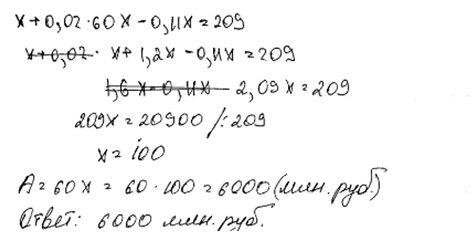 x+0,02·60x-0,11x=209
x+0,02· x+1,2x-0,11x=209
1,6x-0,11x 2,09x=209
209x=20900 /:209
x=100
A=60x=60·100=6000(млн. руб.)
Ответ: 6000 млн. руб.